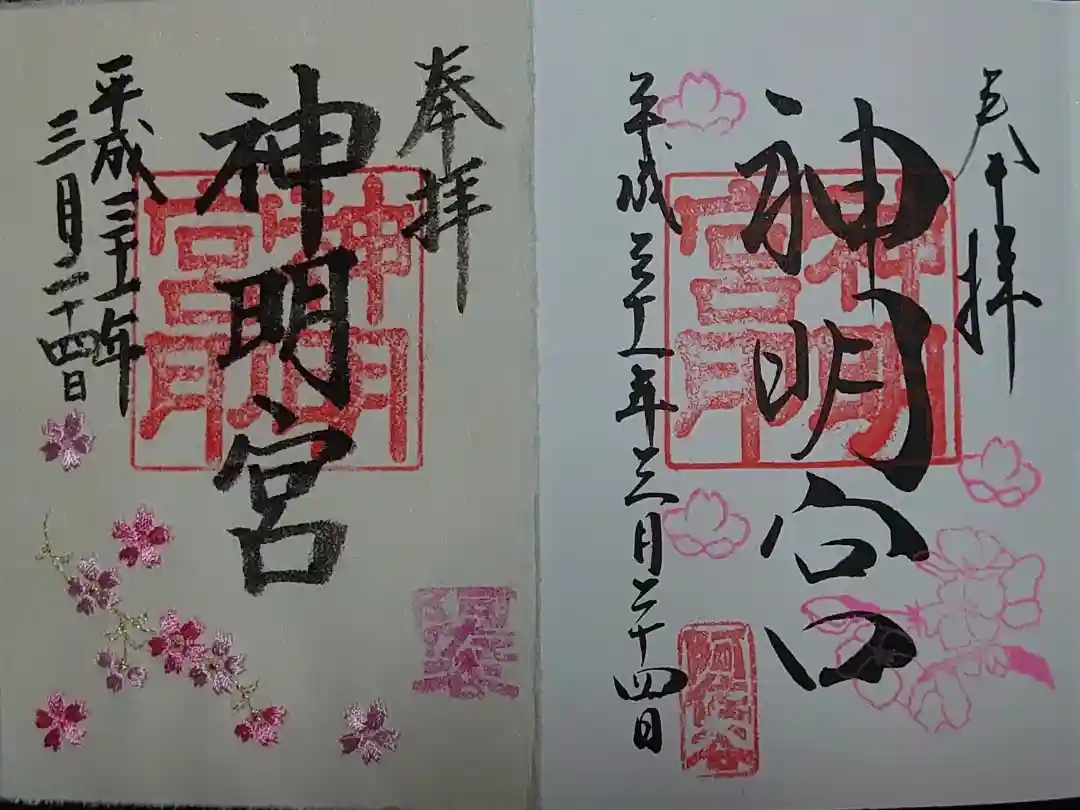 奉拝
神明宮
神明宮印
阿佐ヶ谷
平成三十一年三月二十四日
奉拝
神明宮
神明宮印
平成三十一年
三月二十四日